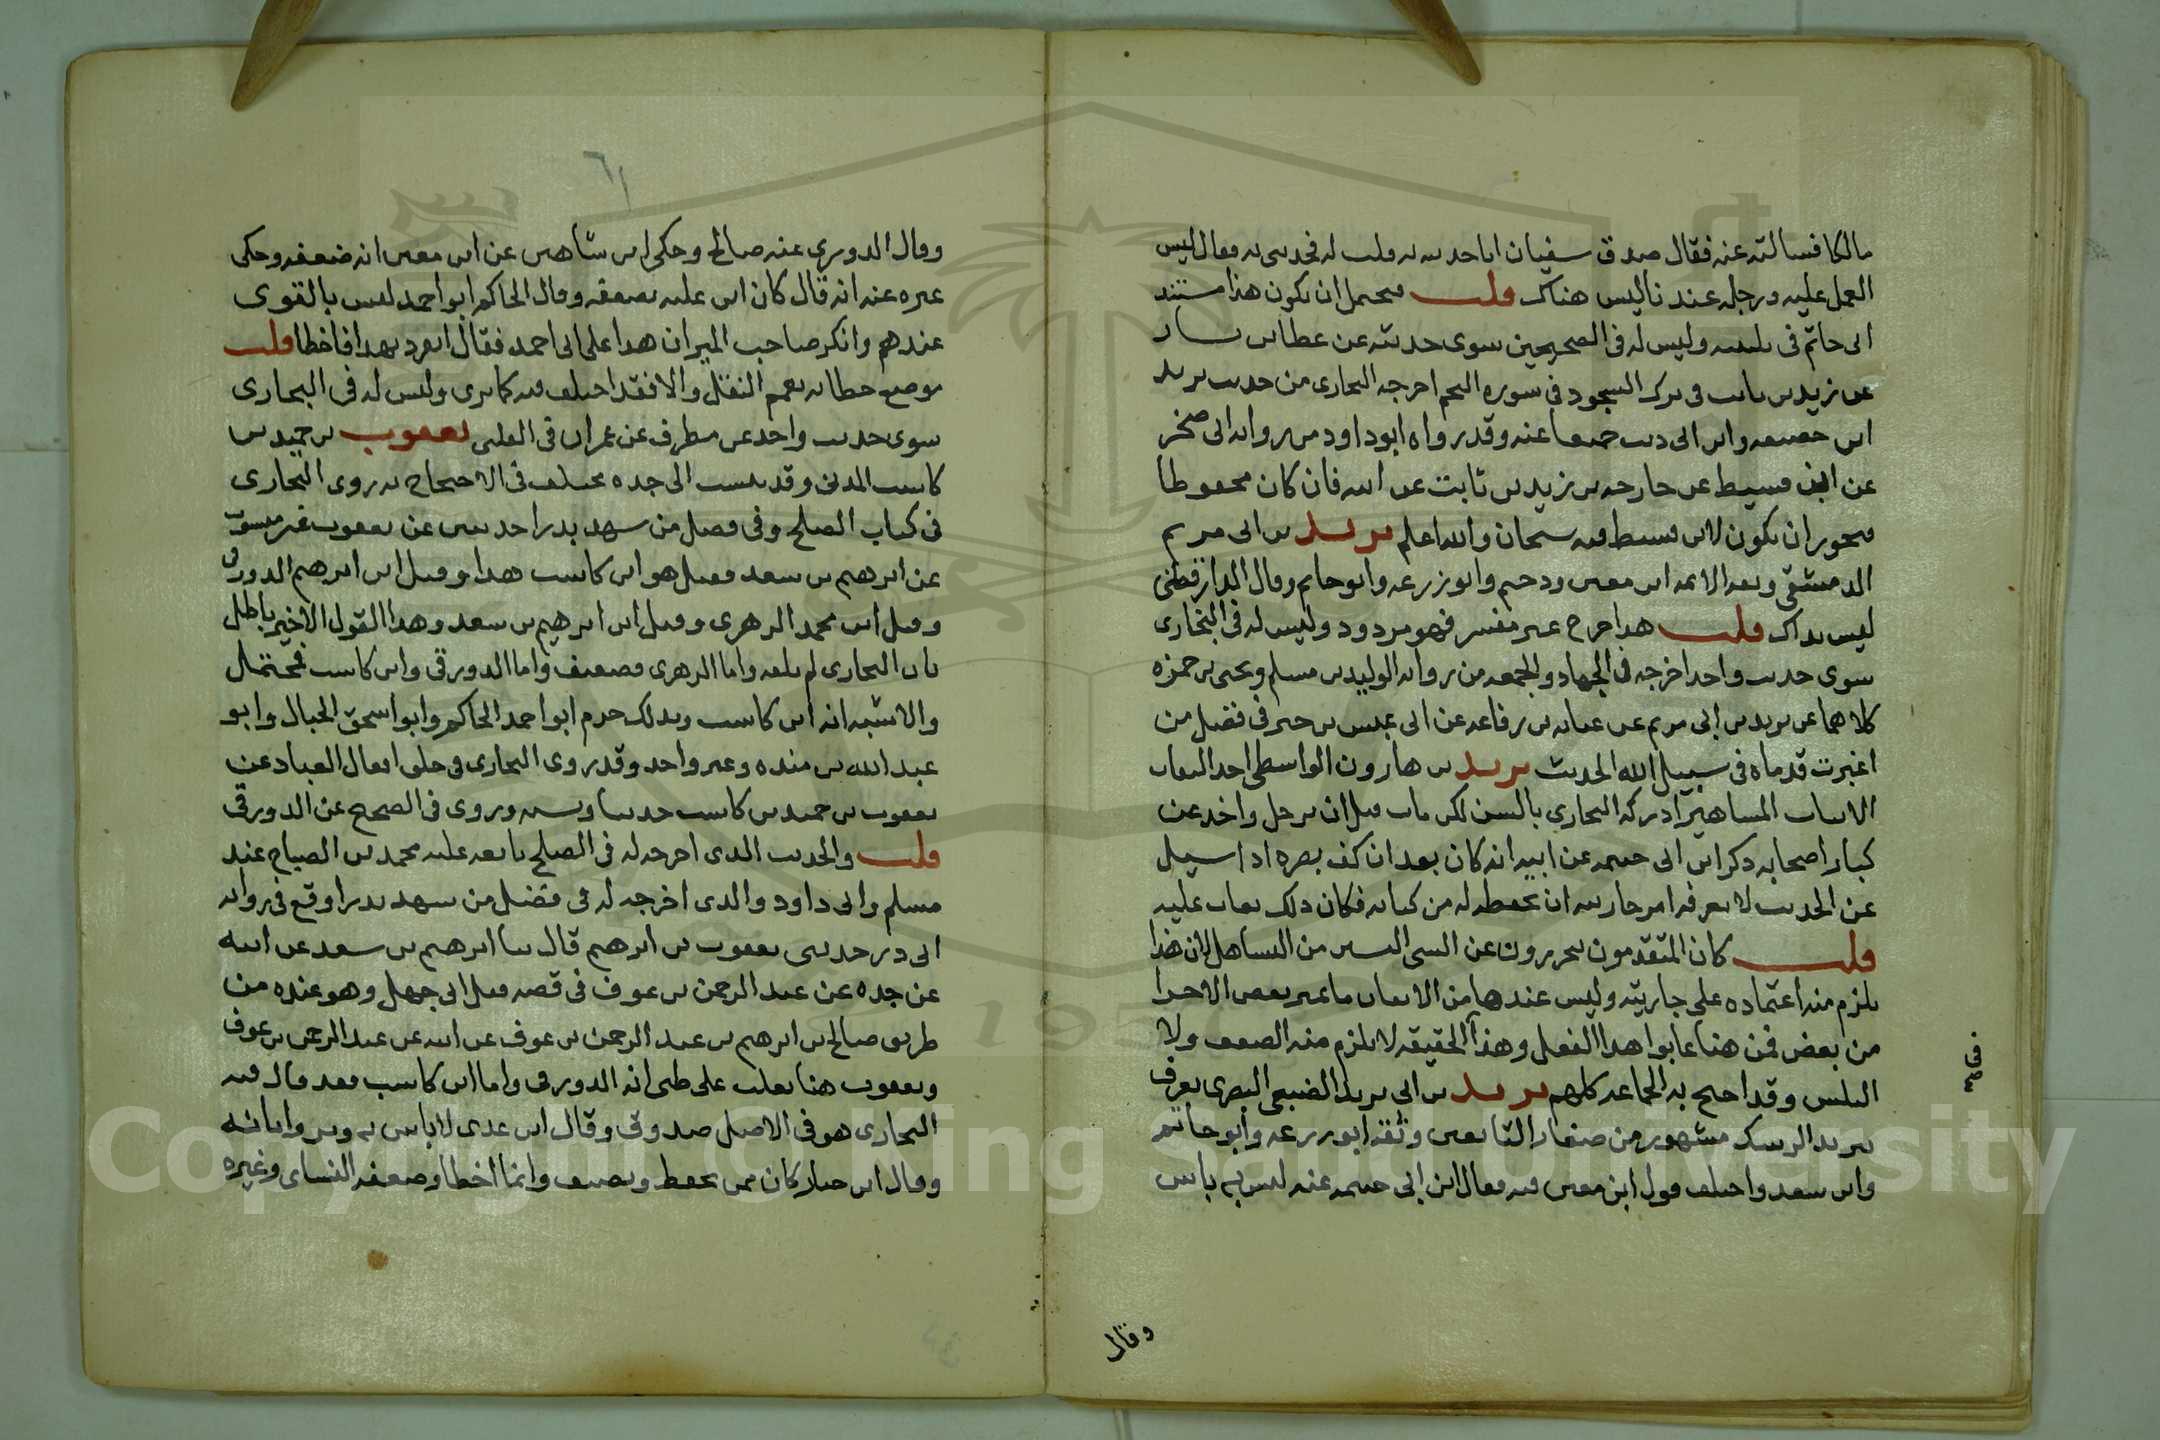 مالكا فسالته عنه فقال صدق سفيان انا حدثته به قلت له فحدثني به فقال ليس
العمل عليه ورجله عندنا ليس هناك قلت فيحتمل ان يكون هذا مستند
ابي حاتم في تليينه وليس له في الصحيحين سوى حديثه عن عطا بن يسار
عن زيد بن ثابت في ترك السجود في سوره النجم اخرجه البخارى من حديث يزيد
ابن خصيفه وابن ابي ذيب جميعا عنه وقد رواه ابو داود من روايه ابي صخر
عن ابن قسيط عن خارجه بن زيد بن ثابت عن ابيه فان كان محفوظا
فيجوز ان يكون لابن قسيط فيه شيخان والله اعلم يزيد بن ابي مريم
الدمشقى وثقه الايمه ابن معين ودحيم وابو زرعه وابو حاتم وقال الدارقطنى
ليس بذاك قلت هذا جرح غير مفسر فهو مردود وليس له في البخارى
سوى حديث واحد اخرجه في الجهاد والجمعه من روايه الوليد بن مسلم ويحيى بن حمزه
كلاهما عن يزيد بن ابي مريم عن عبايه بن رفاعه عن ابي عبس بن جبر في فضل من
اغبرت قدماه في سبيل الله الحديث يزيد بن هارون الواسطى احد الثقات
الاثبات المشاهير ادركه البخارى بالسن لكن مات قبل ان يرحل واخذ عن
كبار اصحابه ذكر ابن ابي خيثمه عن ابيه انه كان بعد ان كف بصره اذا سيل
عن الحديث لا يعرفه امر جاريته ان تحفظه له من كتابه فكان ذلك يعاب عليه
قلت كان المتقدمون يحررون عن الشي اليسير من التساهل لان هذا
يلزم منه اعتماده على جاريته وليس عندها من الاتقان ما تميز بعض الاجزا
من بعض فمن هنا عابوا هذا الفعل وهذا الحقيقه لا يلزم منه الضعف ولا
التلين وقد احتج به الجماعه كلهم يزيد بن ابي يزيد الضبعى البصرى يعرف
بيزيد الرشك مشهور من صغار التابعين وثقه ابو زرعه وابو حاتم
وابن سعد واختلف قول ابن معين فيه فقال ابن ابي خيثمه عنه ليس به باس
في
وقال
٦١
وقال الدورى عنه صالح وحكى ابن شاهين عن ابن معين انه ضعفه وحكى
غيره عنه انه قال كان ابن عليه يضعفه وقال الحاكم ابو احمد ليس بالقوى
عندهم وانكر صاحب الميزان هذا على ابي احمد فقال انفرد بهذا فاخطا قلت
موضع خطايه تعميم النقل والا فقد اختلف فيه كما ترى وليس له في البخارى
سوى حديث واحد عن مطرف عن عمران في يعقوب بن حميد بن
كاسب المدنى وقد ينسب الى جده مختلف في الاحتجاج به روى البخارى
في كتاب الصلح وفي فضل من شهد بدرا حديثين عن يعقوب غير منسوب
عن ابرهيم بن سعد فقيل هو ابن كاسب هذا وقيل ابن ابرهيم الدورقى
وقيل ابن محمد الزهرى وقيل ابن ابرهيم بن سعد وهذا القول الاخير باطل
فان البخارى لم يلقه واما الزهرى فضعيف واما الدورقى وابن كاسب فمحتمل
والاشبه انه ابن كاسب وبذلك جزم ابو احمد الحاكم وابو اسحق الحبال وابو
عبد الله بن منده وغير واحد وقد روى البخارى في خلق افعال العباد عن
يعقوب بن حميد بن كاسب حديثا ونسبه وروى في الصحيح عن الدورقى
قلت والحديث الذى اخرجه له في الصلح تابعه عليه محمد بن الصباح عند
مسلم وابي داود والذى اخرجه له في فضل من شهد بدرا وقع في روايه
ابي ذر حدثنى يعقوب بن ابرهيم قال ثنا ابرهيم بن سعد عن ابيه
عن جده عن عبد الرحمن بن عوف في قصه قتل ابي جهل وهو عنده من
طريق صالح بن ابرهيم بن عبد الرحمن بن عوف عن ابيه عن عبد الرحمن بن عوف
ويعقوب هنا يغلب على ظنى انه الدورقى واما ابن كاسب فقد قال فيه
البخارى هو في الاصل صدوق وقال ابن عدى لا باس به وبرواياته
وقال ابن حبان كان ممن يحفظ ويصنف وانما اخطا وضعفه النساى وغيره
Copyright © King Saud University